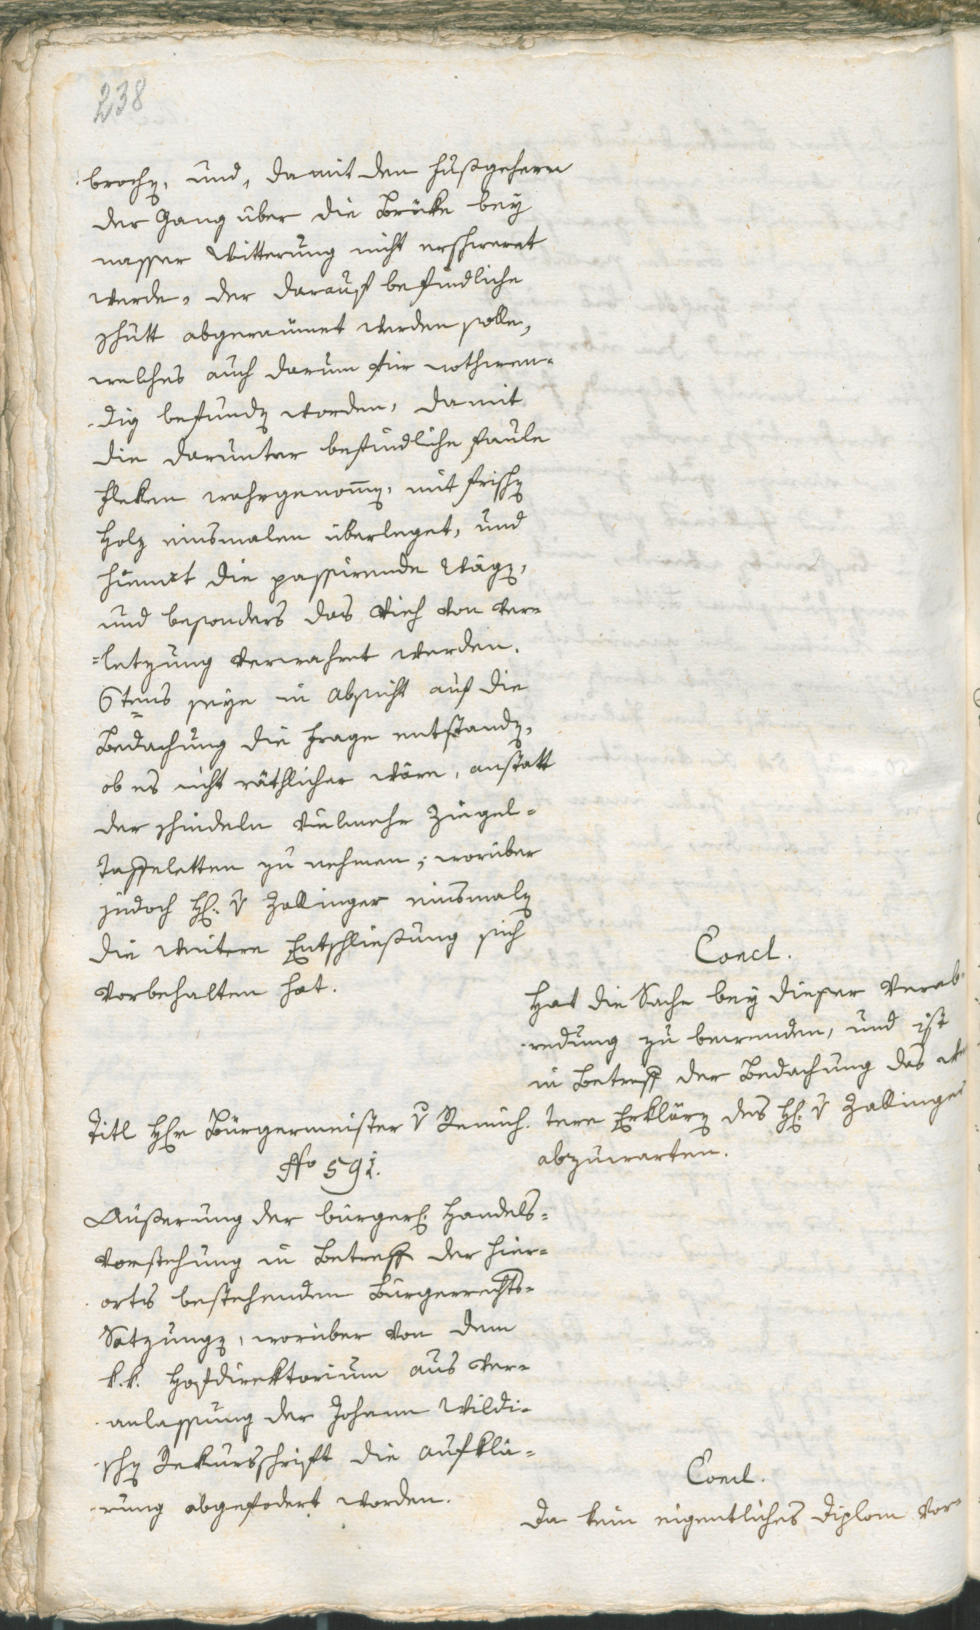 238
broch[en], und, damit den Fußgehern
der Gang über die Brüke bey
nasser Witterung nicht erschweret
werde, der darauf befindliche
Schütt abgeraumet werden solle,
welches auch darum für nothwen-
dig befund[en] worden, damit
die darunter befindliche faule
Fleken wahrgenom[m]en, mit frisch[en]
Holz einsmalen überleget, und
hiemit die passirende Wäg[en],
und besonders das Vieh von Ver-
=letzung verwahret werden.
6tens seye in Absicht auf die
Bedachung die Frage entstand[en],
ob es nicht räthlicher wäre, anstatt
der Schindeln vielmehr Ziegel-
Tasseletten zu nehmen; worüber
jedoch H[err] v Zallinger einsmal[en]
die weitere Entschließung sich
vorbehalten hat.
Concl.
Hat die Sache bey dieser Verab-
redung zu bewenden, und ist
in Betreff der Bedachung das
tere Erklär[un]g des H[errn] v Zallinger
abzuwarten.
Titl H[er]r Bürgermeister v Remich.
No 591.
Äußerung der bürgerl. Handels-
Vorstehung in Betreff der hier-
orts bestehenden Bürgerrechts-
Satzung[en], worüber von dem
k.k. Hofdirektorium aus Ver-
anlassung der Johann Wildi-
sch[en] Rekursschrift die Aufklä-
rung abgefodert worden.
Concl.
Da kein eigentliches Diplom vor-